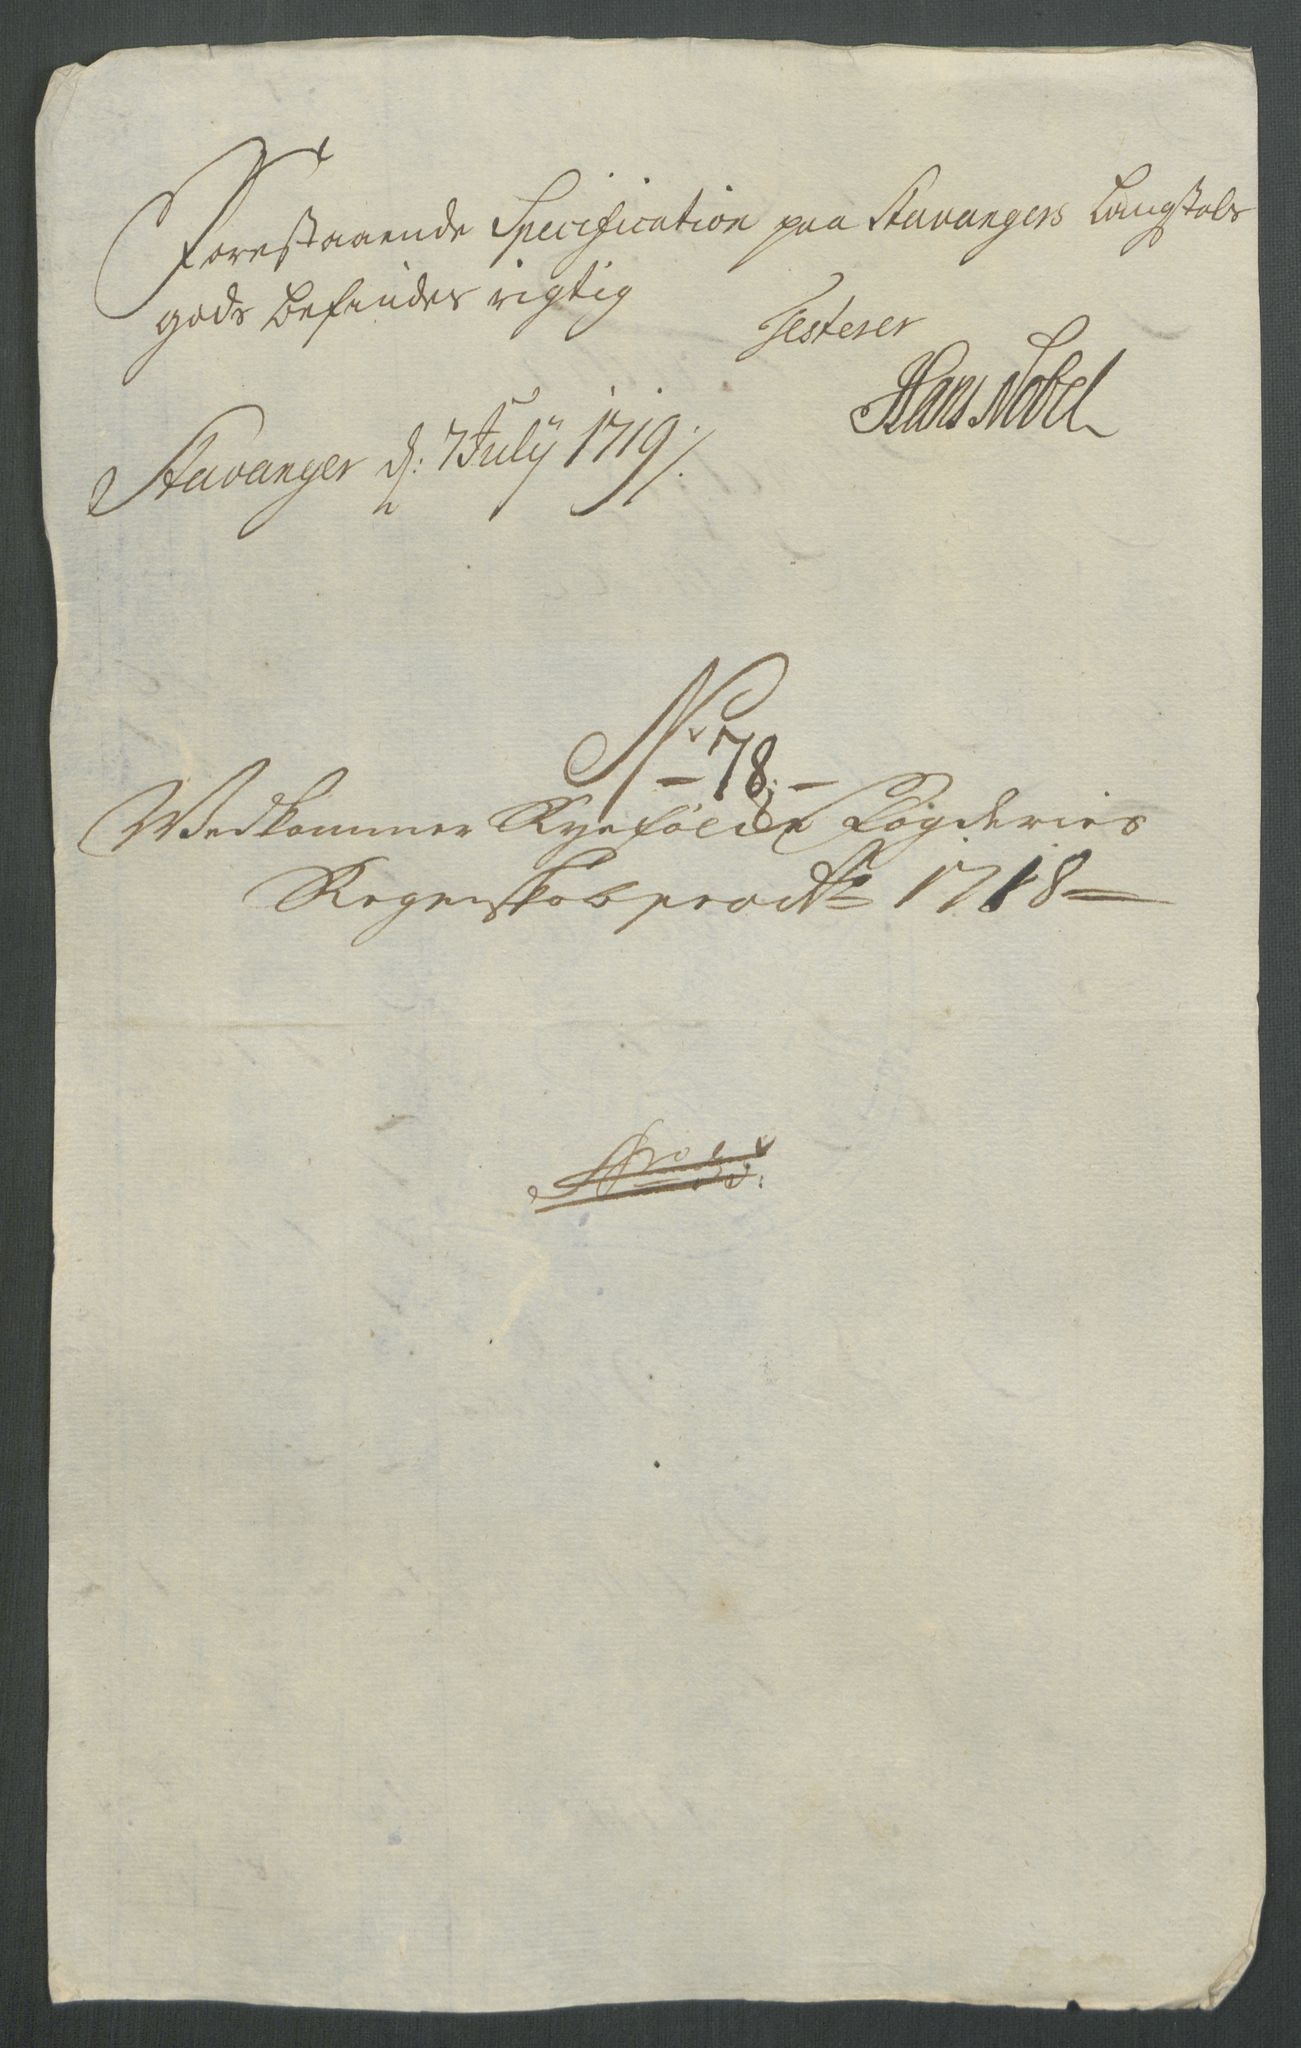 Forestaaende Specification paa Stavangers Laugstols
gods befindes rigtig
Testerer
Hans Nobel
Stavanger d: 7 July 1719 /.
No 78.
Vedkommer Ryefölche Fögderies
Regenskab pro Ao 1718